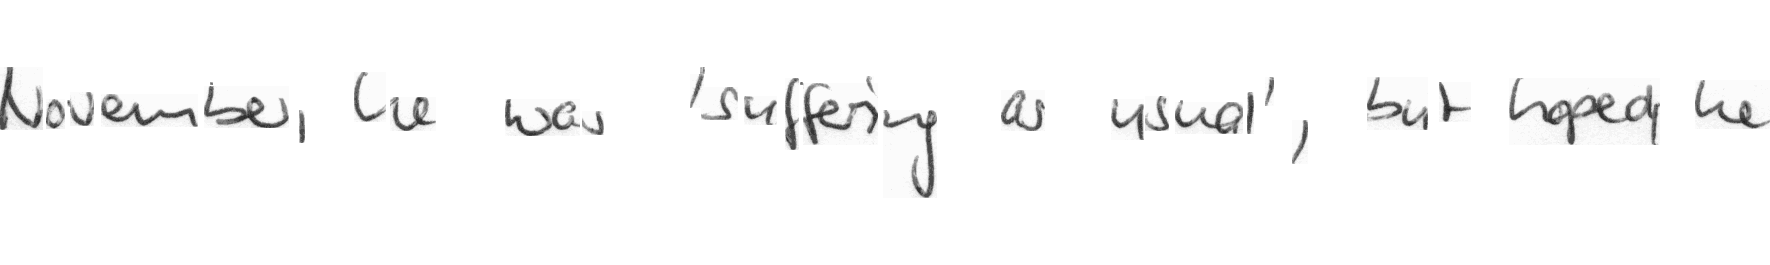 November, he was 'suffering as usual', but hoped he